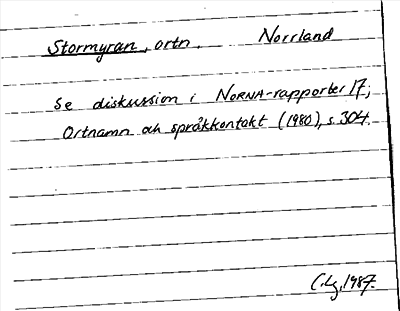 Stormyran, ortn. Norrland
Se diskussion i NORNA-rapporter 17;
Ortnamn och språkkontakt (1980), s. 304.
C.Lg. 1987.